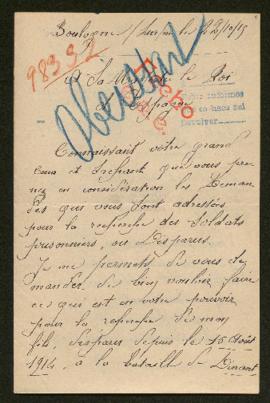 Boulogne s/ le 22/10/15
A Sa Majesté le Roi
d'Espagne
Connaissant votre grand
cœur et sachant que vous pre
nez en considération les deman
des qui vous sont adressées
pour la recherche des soldats
prisonniers, ou disparus.
Je me permets de vous de
mander de bien vouloir faire
ce qui est en votre pouvoir
pour la recherche de mon
fils, disparu depuis le 15 Août
1914, à la bataille de Dinant